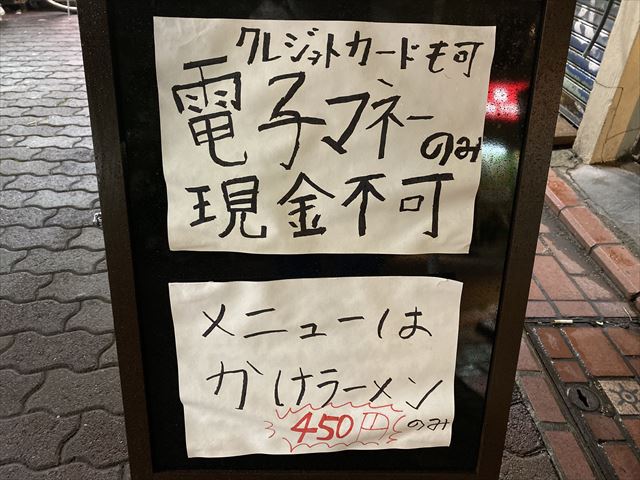 クレジットカードも可
電子マネーのみ
現金不可
メニューは
かけラーメン
450円のみ